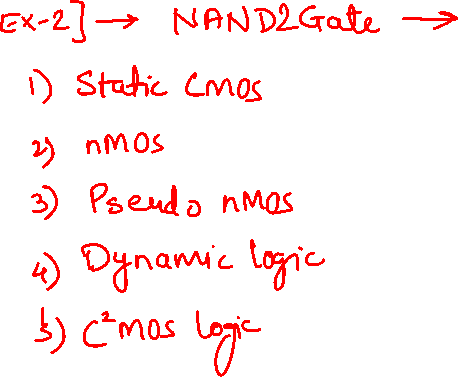 Ex-2] → NAND2Gate →
1) Static CMOS
2) nMOS
3) Pseudo nMOS
4) Dynamic logic
5) C²MOS logic